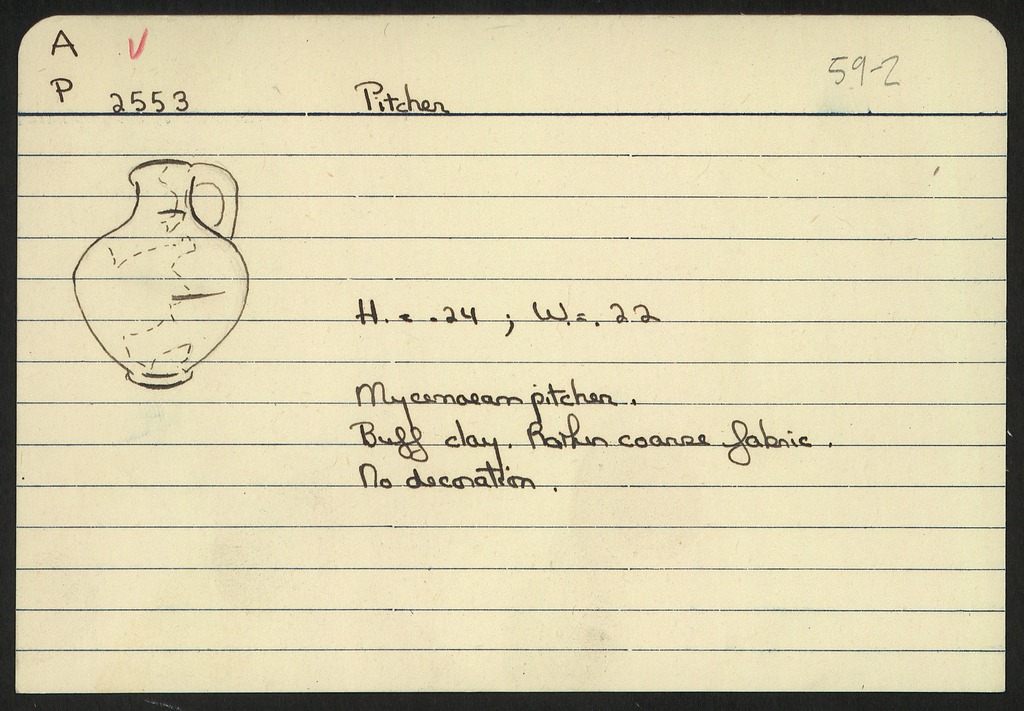 A V
59-2
P 2553 Pitcher
H. = .24 ; W. = .22
Mycenaean pitcher.
Buff clay. Rather coarse fabric.
No decoration.